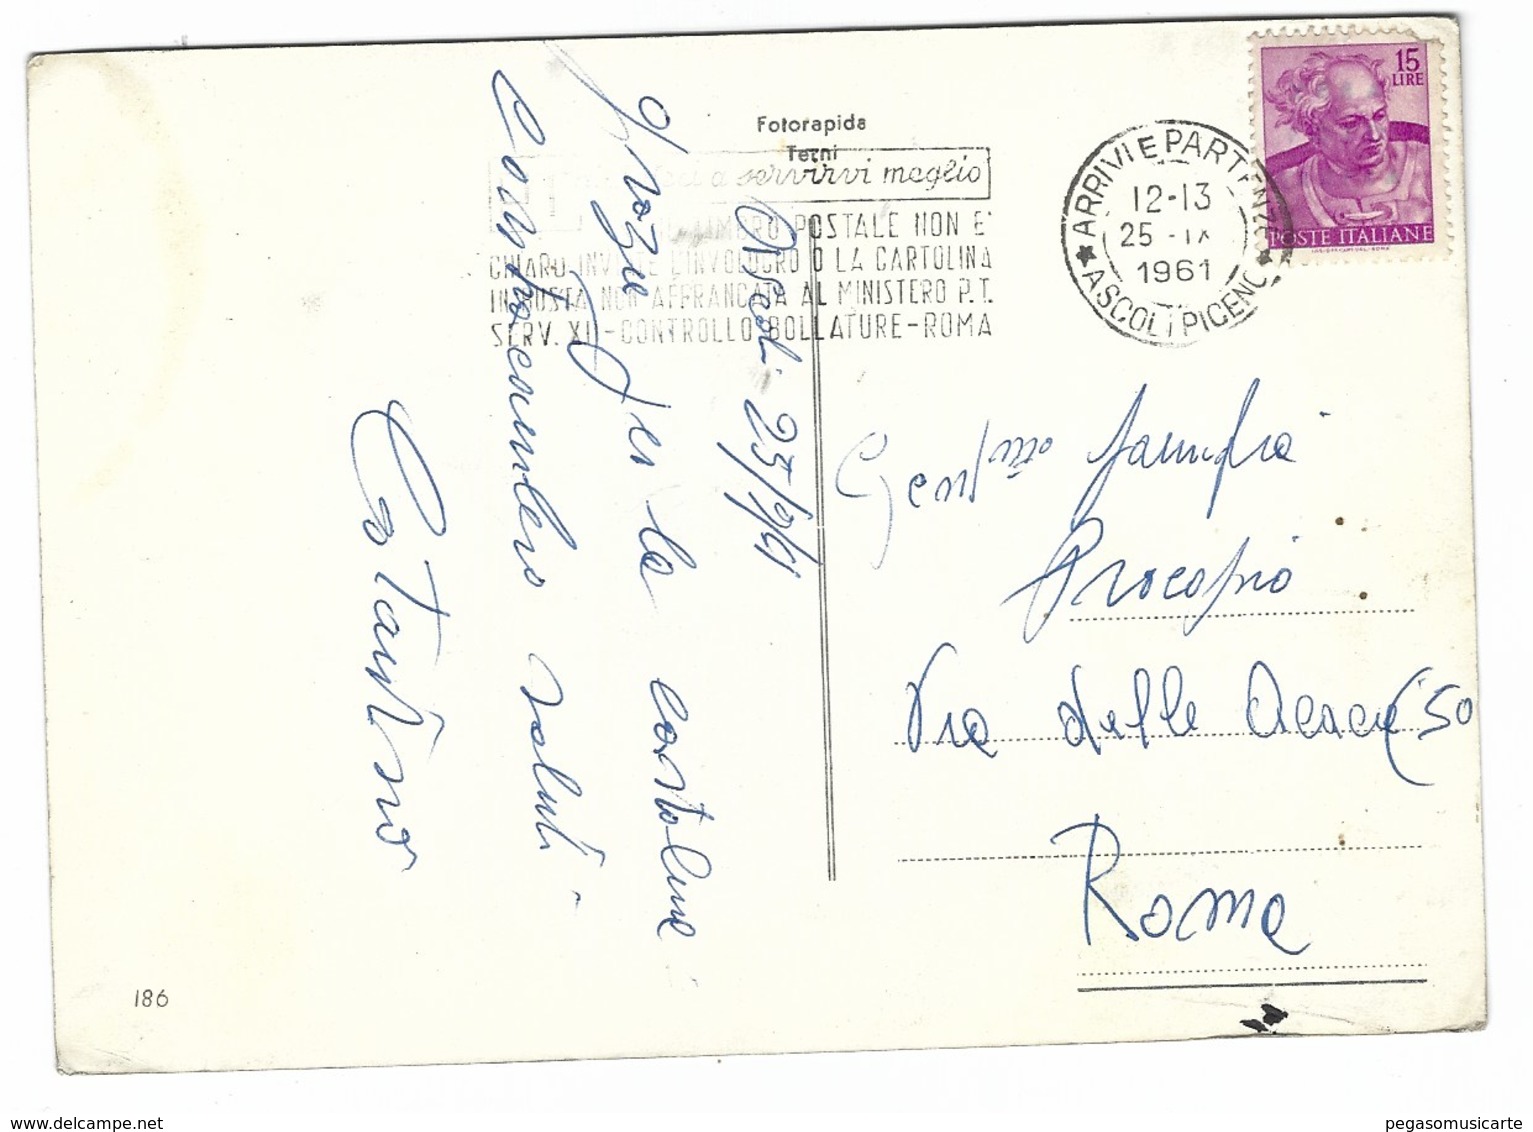 Fotorapida
Terni
a servirvi meglio
POSTALE NON E'
CHIARO INVIATE L'INVOLUCRO O LA CARTOLINA
IN BUSTA NON AFFRANCATA AL MINISTERO P.T.
SERV. XII - CONTROLLO BOLLATURE - ROMA
ARRIVI E PARTENZE
12-13
25 -IX
1961
ASCOLI PICENO
15
LIRE
POSTE ITALIANE
Ascoli 25/9/61
Grazie per le cartoline
Contraccambio saluti
Costantino
Famiglia
Procopio
Via delle Acacie 50
Roma
186
pegasomusicarte